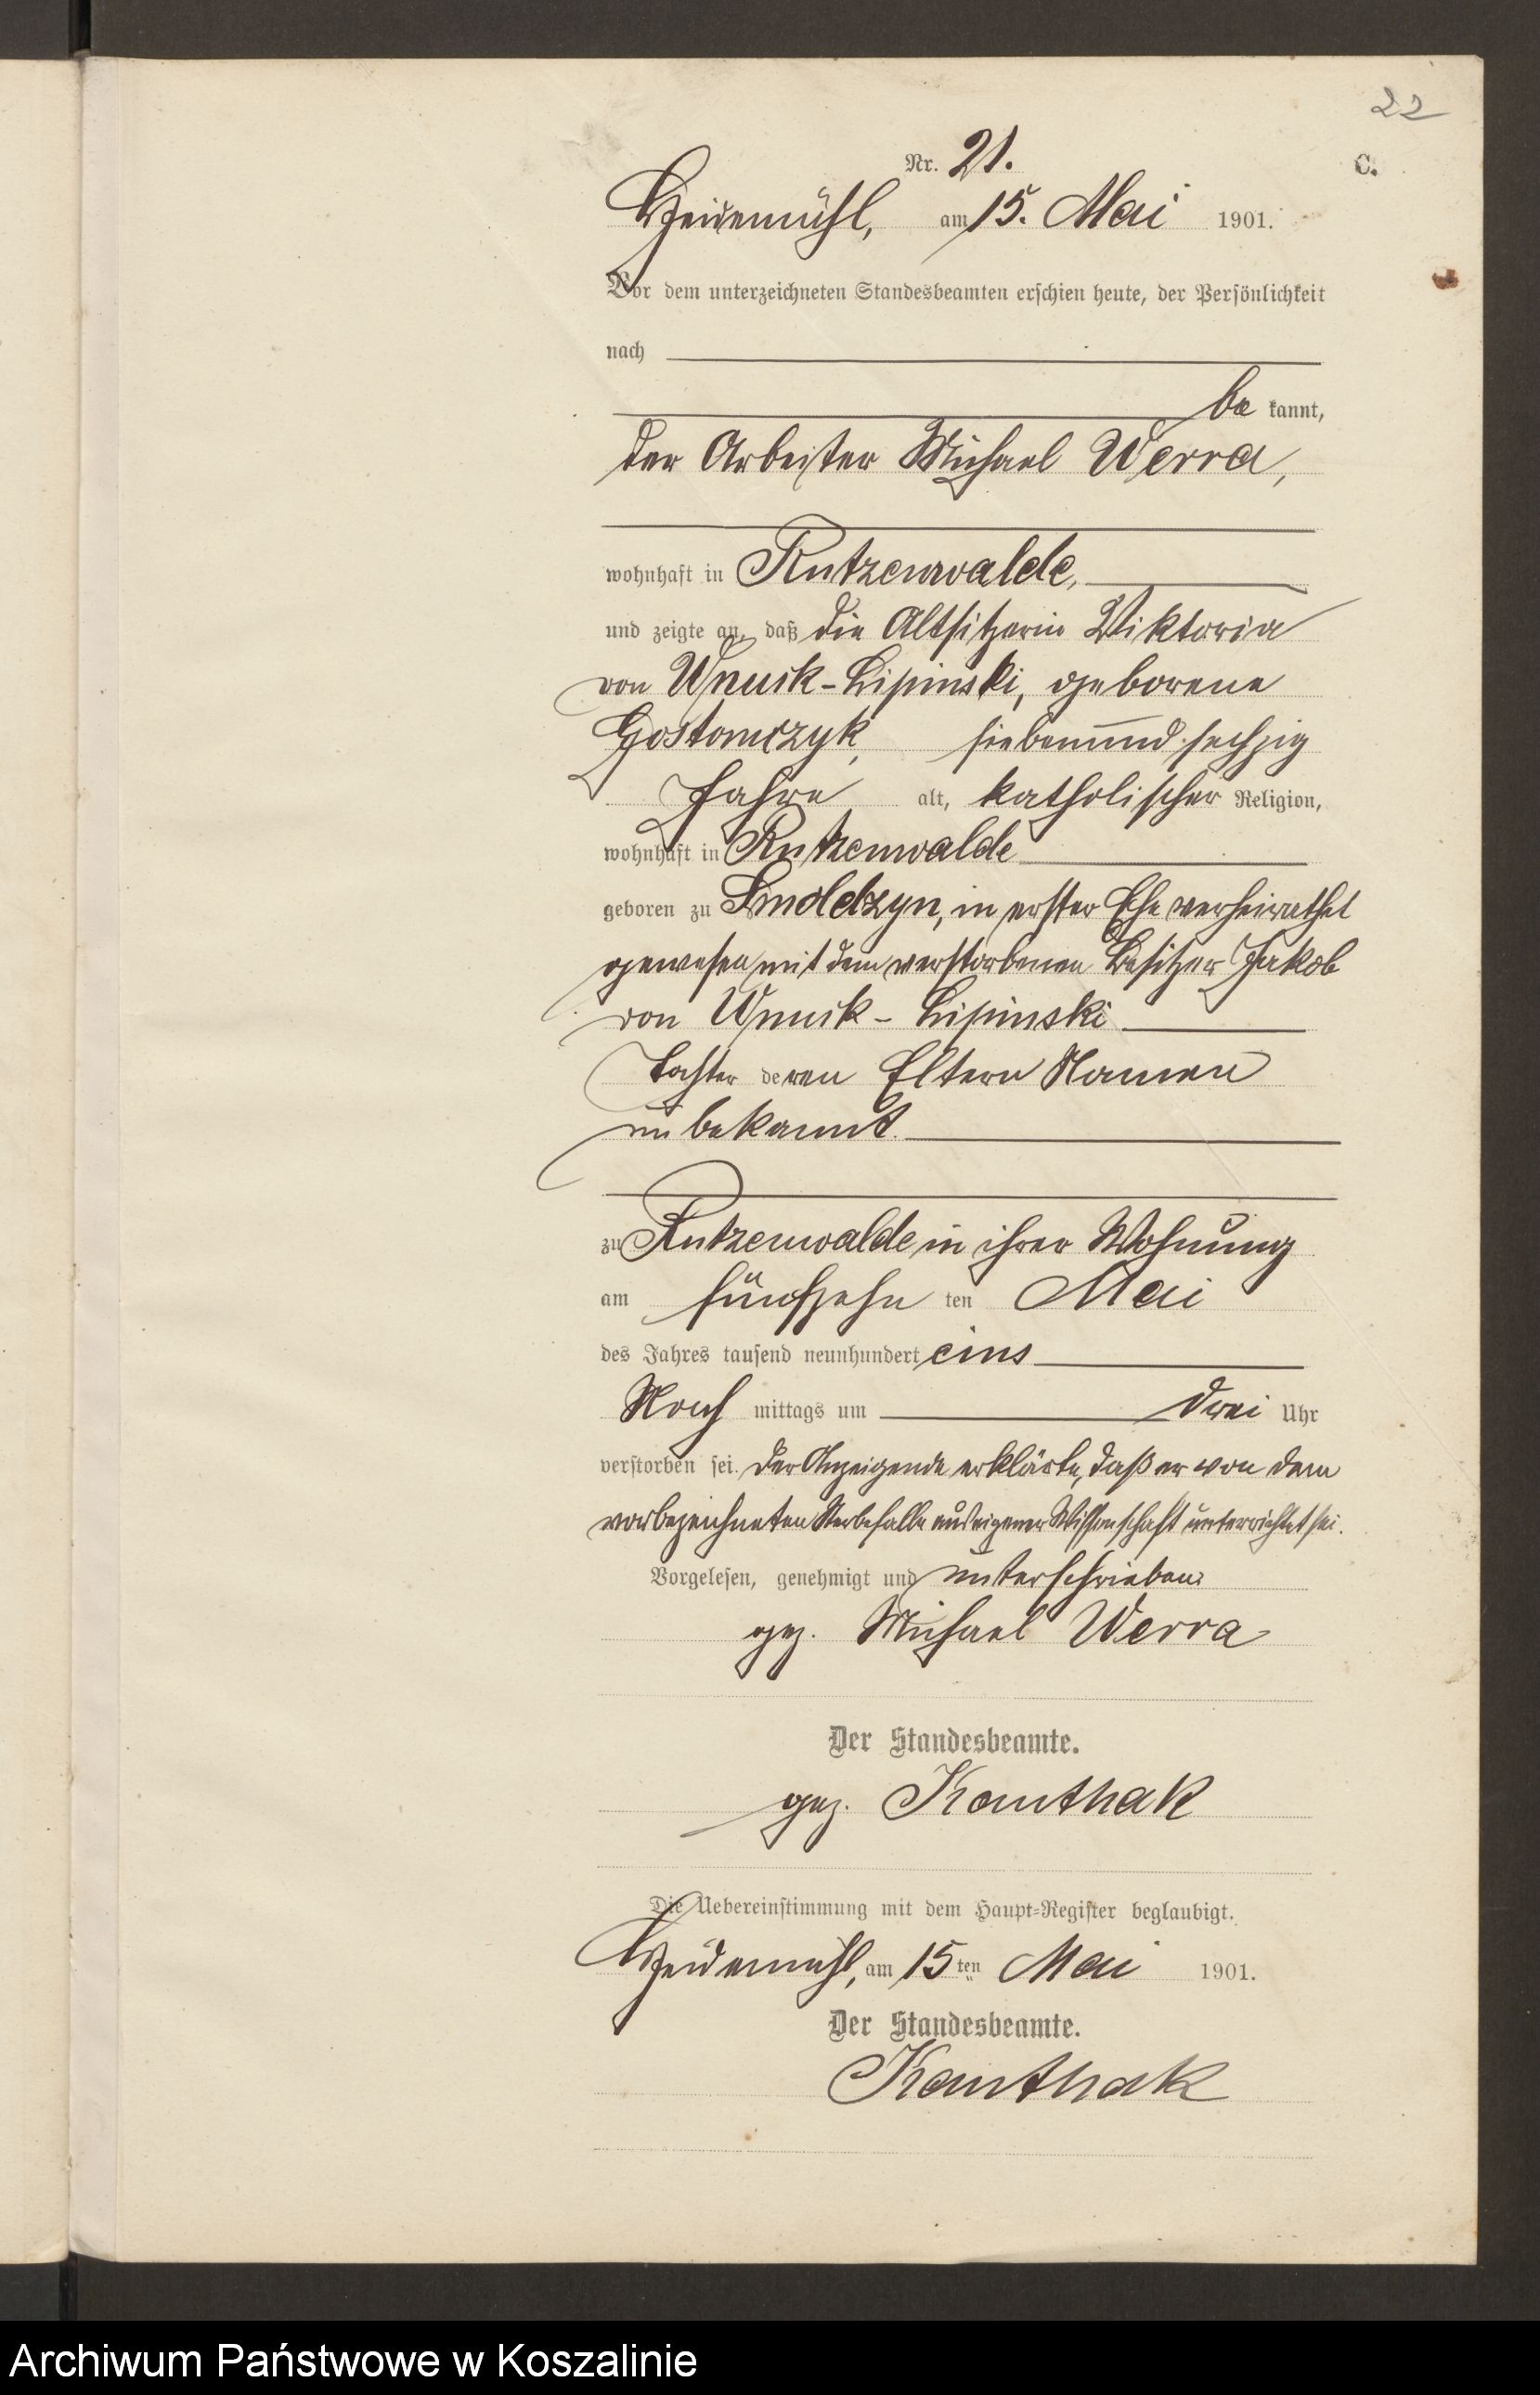 22
Nr. 21.
C.
Heidemühl, am 15. Mai 1901.
Vor dem unterzeichneten Standesbeamten erschien heute, der Persönlichkeit
nach
be kannt,
der Arbeiter Michael Werra,
wohnhaft in Rutzenwalde,
und zeigte an, daß die Altsitzerin Viktoria
von Wnuck-Lipinski, geborene
Gostomczyk, siebenundsechzig
Jahre alt, katholischer Religion,
wohnhaft in Rutzenwalde
geboren zu Smoldzyn, in erster Ehe verheirathet
gewesen mit dem verstorbenen Besitzer Jakob
von Wnuck-Lipinski
Tochter deren Eltern Namen
unbekannt.
zu Rutzenwalde in ihrer Wohnung
am fünfzehn ten Mai
des Jahres tausend neunhundert eins
Nach mittags um drei Uhr
verstorben sei. Der Anzeigende erklärte, daß er von dem
vorbezeichneten Sterbefalle aus eigener Wissenschaft unterrichtet sei.
Vorgelesen, genehmigt und unterschrieben
gez. Michael Werra
Der Standesbeamte.
gez. Kanthak
Die Uebereinstimmung mit dem Haupt-Register beglaubigt.
Heidemühl, am 15ten Mai 1901.
Der Standesbeamte.
Kanthak
Archiwum Państwowe w Koszalinie